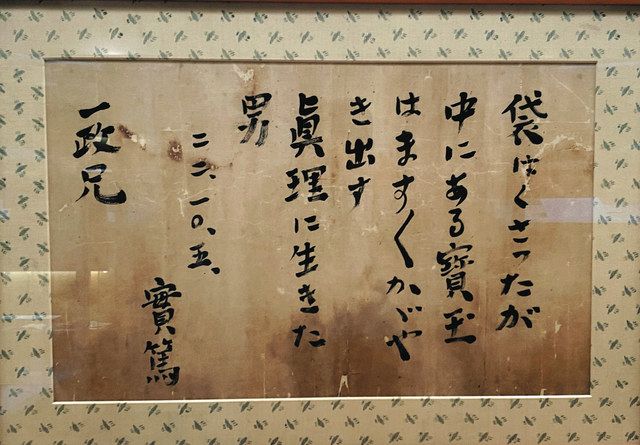 袋はくさったが
中にある寳玉
はますくかゞや
き出す
眞理に生きた
男
二六、一〇、五、
實篤
一政兄